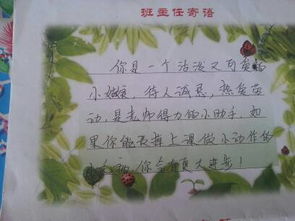 班主任寄语
你是一个活泼又可爱的
小姑娘,待人诚恳,热爱劳
动,是老师得力的小助手,如
果你能丢掉上课做小动作的
你会有更大进步!